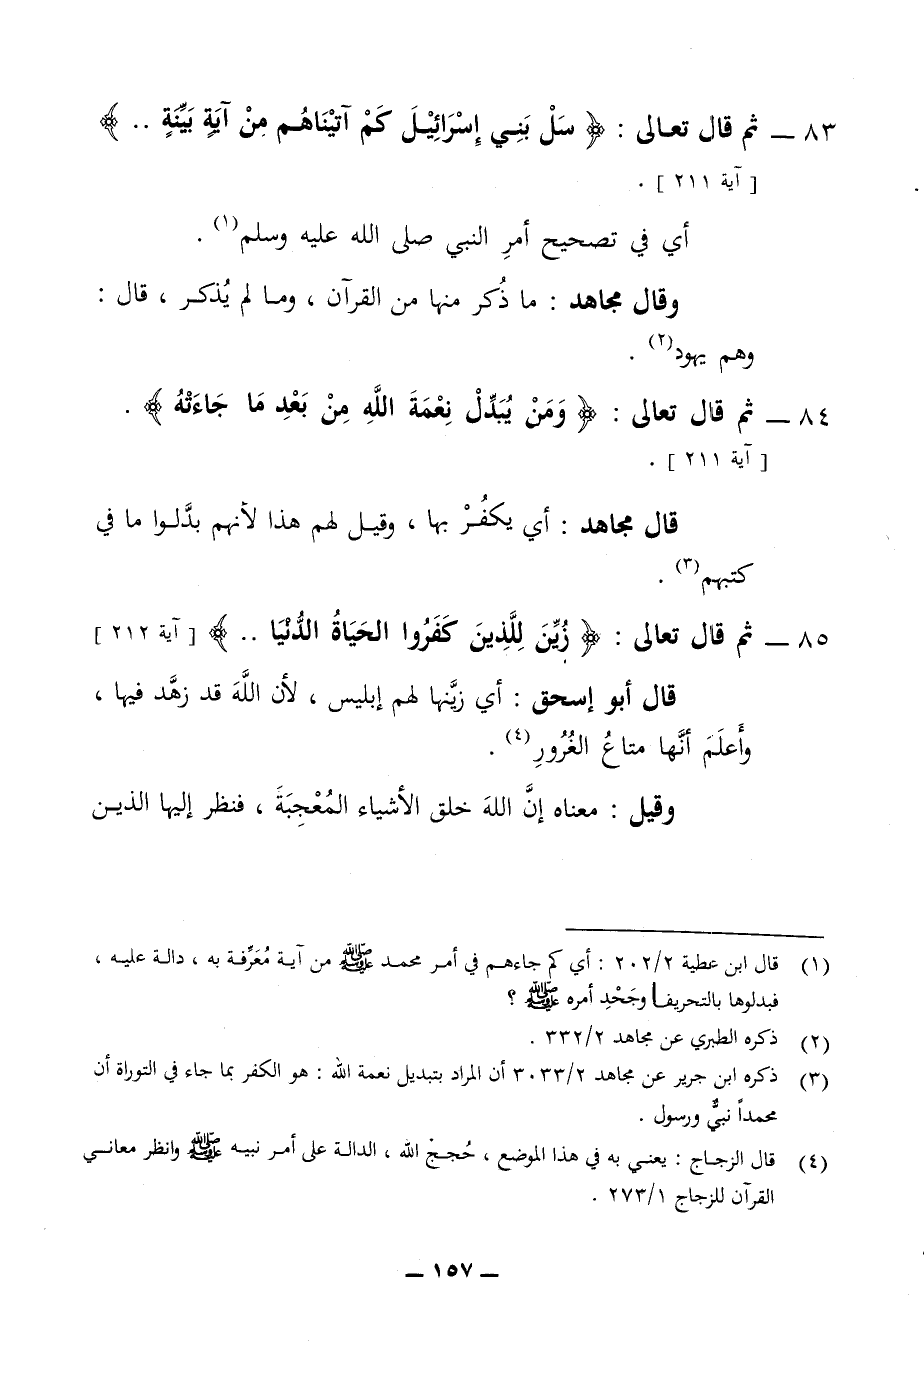 ٨٣ ــ ثم قال تعالى : ﴿ سَلْ بَنِي إِسْرَائِيْلَ كَمْ آتَيْنَاهُم مِنْ آيَةٍ بَيِّنَةٍ .. ﴾
[ آية ٢١١ ] .
أي في تصحيح أمرِ النبي صلى الله عليه وسلم(١) .
وقال مجاهد : ما ذُكر منها من القرآن ، وما لم يُذكر ، قال :
وهم يهود(٢) .
٨٤ ــ ثم قال تعالى : ﴿ وَمَنْ يُبَدِّلْ نِعْمَةَ اللَّهِ مِنْ بَعْدِ مَا جَاءَتْهُ ﴾ .
[ آية ٢١١ ] .
قال مجاهد : أي يكفُرْ بها ، وقيل لهم هذا لأنهم بدَّلوا ما في
كتبهم(٣) .
٨٥ ــ ثم قال تعالى : ﴿ زُيِّنَ لِلَّذِينَ كَفَرُوا الحَيَاةُ الدُّنْيَا .. ﴾ [ آية ٢١٢ ]
قال أبو إسحق : أي زيَّنها لهم إبليس ، لأن اللَّهَ قد زهَّد فيها ،
وأَعلَمَ أنَّها متاعُ الغُرُورِ(٤) .
وقيل : معناه إنَّ اللهَ خلق الأشياء المُعْجِبَةَ ، فنظر إليها الذين
(١) قال ابن عطية ٢٠٢/٢ : أي كم جاءهم في أمر محمد ﷺ من آية مُعَرِّفة به ، دالة عليه ،
فبدلوها بالتحريف وجَحْدِ أمره ﷺ ؟
(٢) ذكره الطبري عن مجاهد ٣٣٢/٢ .
(٣) ذكره ابن جرير عن مجاهد ٣٠٣٣/٢ أن المراد بتبديل نعمة الله : هو الكفر بما جاء في التوراة أن
محمداً نبيٌّ ورسول .
(٤) قال الزجاج : يعني به في هذا الموضع ، حُججْ الله ، الدالة على أمر نبيه ﷺ وانظر معاني
القرآن للزجاج ٢٧٣/١ .
ــ ١٥٧ ــ